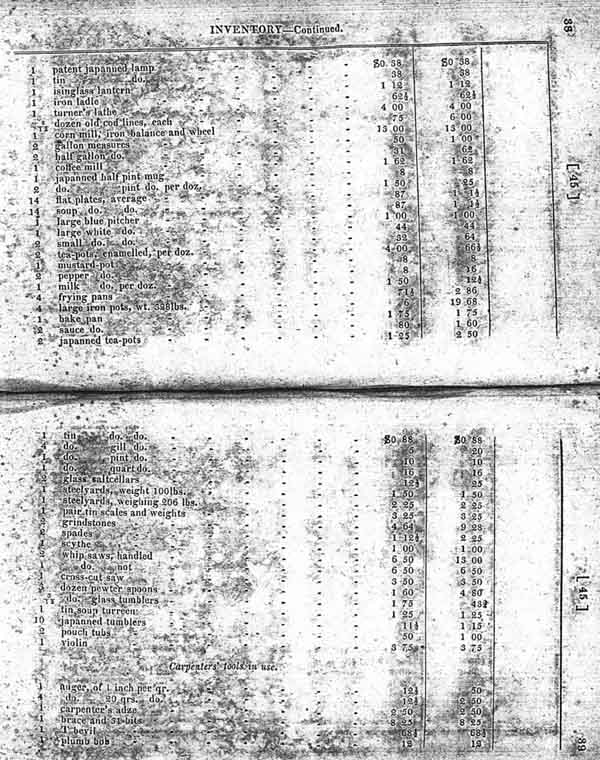 INVENTORY—Continued.
38
1 patent japanned lamp $0 38 $0 38
1 tin do. 38 38
1 isinglass lantern 1 12 1 12
1 iron ladle 62½ 62½
1 turner's lathe 4 00 4 00
dozen old cod lines, each 75 6 00
1 corn mill, iron balance and wheel 13 00 13 00
2 gallon measures 50 1 00
2 half gallon do. 31 62
1 coffee mill 1 62 1 62
1 japanned half pint mug 8 8
2 do. pint do. per doz. 1 50 25
14 flat plates, average 87
14 soup do. do. 87
1 large blue pitcher 1 00 1 00
1 large white do. 44 44
2 small do. do. 32 64
2 tea-pots, enamelled, per doz. 4 00 66½
1 mustard-pot 8 8
2 pepper do. 8 16
1 milk do. per doz. 1 50 12½
4 frying pans 71½ 2 86
4 large iron pots, wt. 328lbs. 6 19 68
1 bake pan 1 75 1 75
2 sauce do. 80 1 60
2 japanned tea-pots 1 25 2 50
[ 45 ]
1 tin do. do. $0 88 $0 88
4 do. gill do. 5 20
1 do. pint do. 10 10
1 do. quart do. 16 16
2 glass saltcellars 12½ 25
1 steelyards, weight 100lbs. 1 50 1 50
1 steelyards, weighing 206 lbs. 2 25 2 25
1 pair tin scales and weights 3 25 3 25
2 grindstones 4 64 9 28
2 spades 1 12½ 2 25
1 scythe 1 00 1 00
2 whip saws, handled 6 50 13 00
1 do. not 6 50 6 50
1 cross-cut saw 3 50 3 50
dozen pewter spoons 1 60 4 80
do. glass tumblers 1 75 43¾
1 tin soup turreen 1 25 1 25
10 japanned tumblers 11½ 1 15
2 pouch tubs 50 1 00
1 violin 3 75 3 75
Carpenters' tools in use.
auger, of 1 inch per qr. 12½ 50
do. 20 qrs. do. 12½ 2 50
1 carpenter's adze 2 50 2 50
1 brace and 31 bits 8 25 8 25
1 T bevil 68½ 68½
1 plumb bob 12 12
[ 45 ]
39